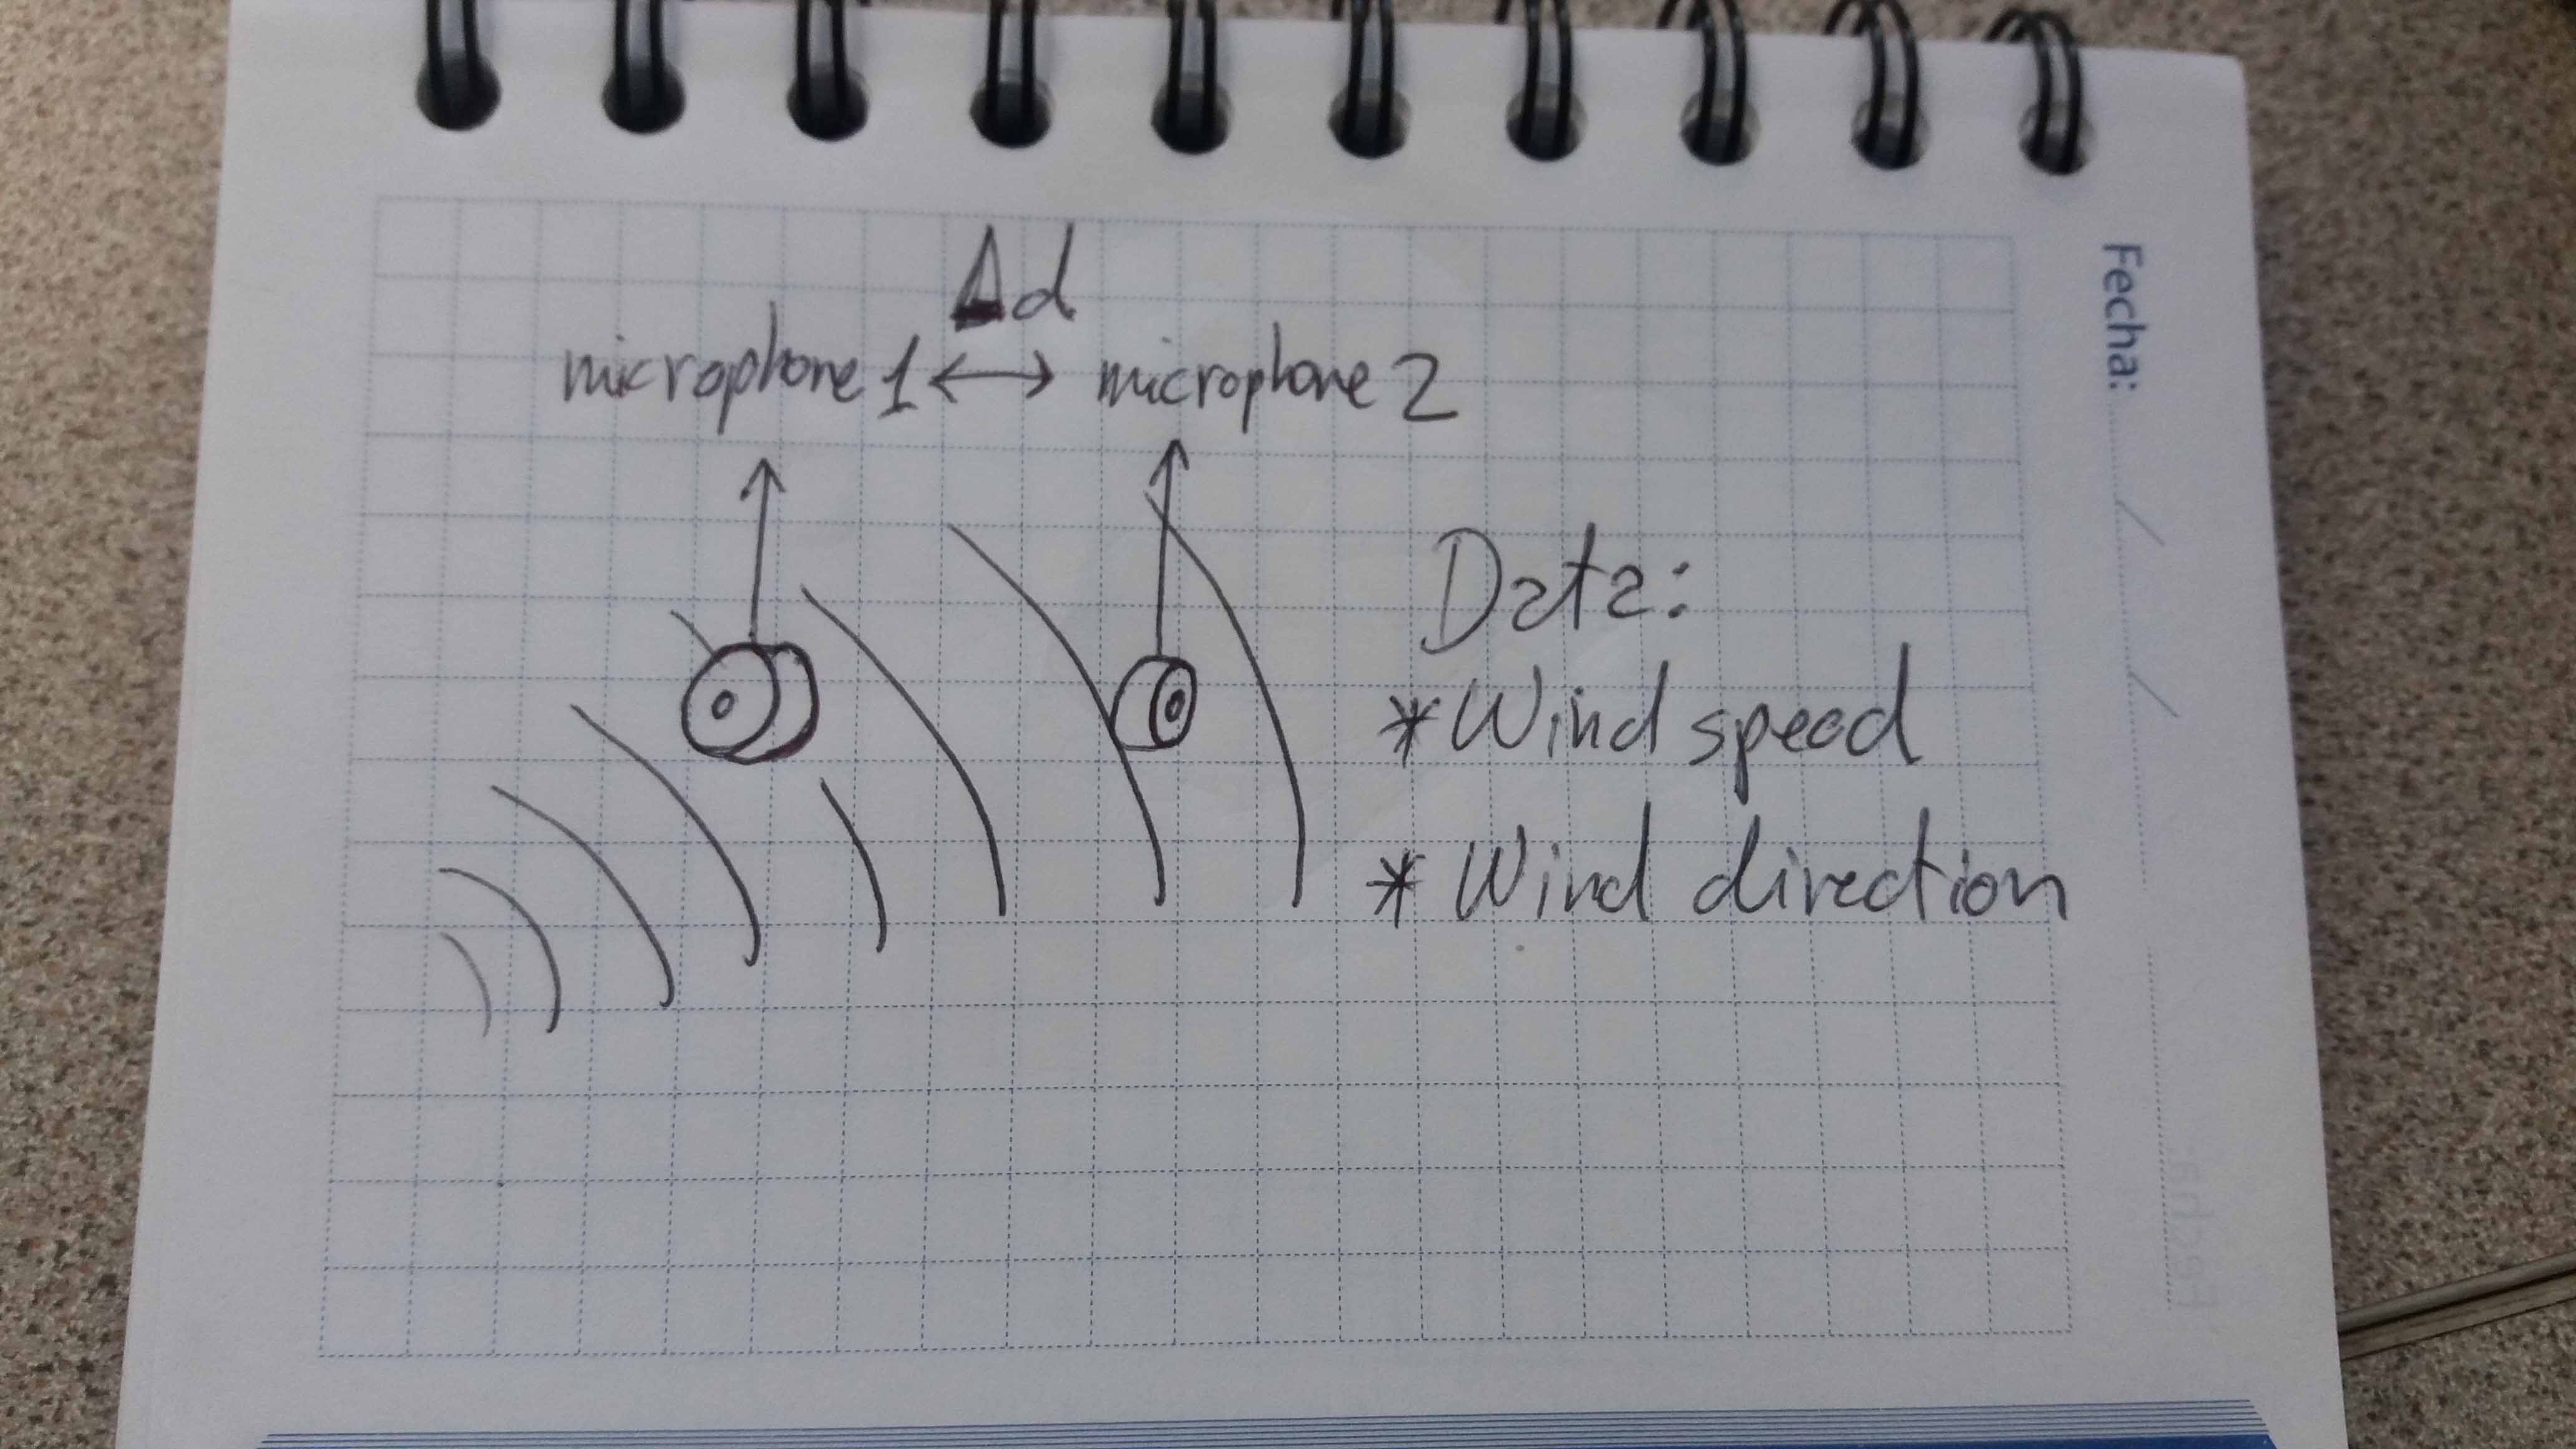 Δd
microphone 1 ↔ microphone 2
Data:
* Wind speed
* Wind direction
Fecha: / /